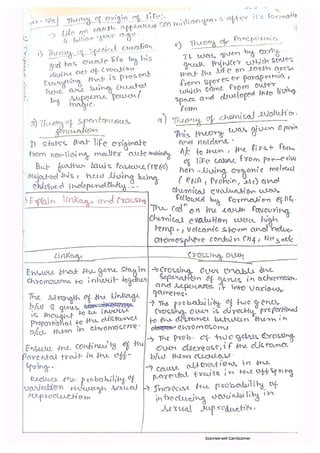 Theory of origin of life:-
→ life on earth appeared 500 million years after its formation
4 billion year ago
1) Theory of Special Creation
god has create life by his
divine act of creation
Everything that is present
here are being created
by supreme power/
magic.
2) Theory of Panspermia
It was given by early
greek thinker which states
that the life on earth
from spores or panspermia,
which came from outer
space and developed into living
form
3) Theory of spontaneous
generation
It states that life originate
from non-living matter
But further louis Pasteur (1860)
rejected this, new living being
4) Theory of chemical evolution.
This theory was given Oparin
and Haldane.
A/c to them, the first form
of life came from pre-
non-living organic molecule
(RNA, Protein, etc) and
chemical evaluation was
followed by formation of
The on the earth favouring
chemical evolution were high
temp, volcanic storm and
atmosphere contain CH4, NH3 etc
Explain linkage and Crossing
linkage
Ensure that the gene stay in
chromosome to inherit together
The strength of the linkage
b/w 2 genes
is thought to be inverse
Proportional to the distance
b/w them in chromosome
Ensure the continuity of the
parental trait in the off-
spring.
Reduce the probability of
variation through sexual
reproduction
Crossing over
→ Crossing over enable the
separation of genes in a chromosom
and separates it into various
gametes.
→ The probability of two genes
crossing over is directly proportional
to the distance between them in
chromosome
→ The prob. of two genes crossing
over decrease, if the distance
b/w them decrease
→ cause alterations in the
parental traits in the offspring
→ Increase the probability of
introducing variability in
sexual reproduction.
Scanned with CamScanner